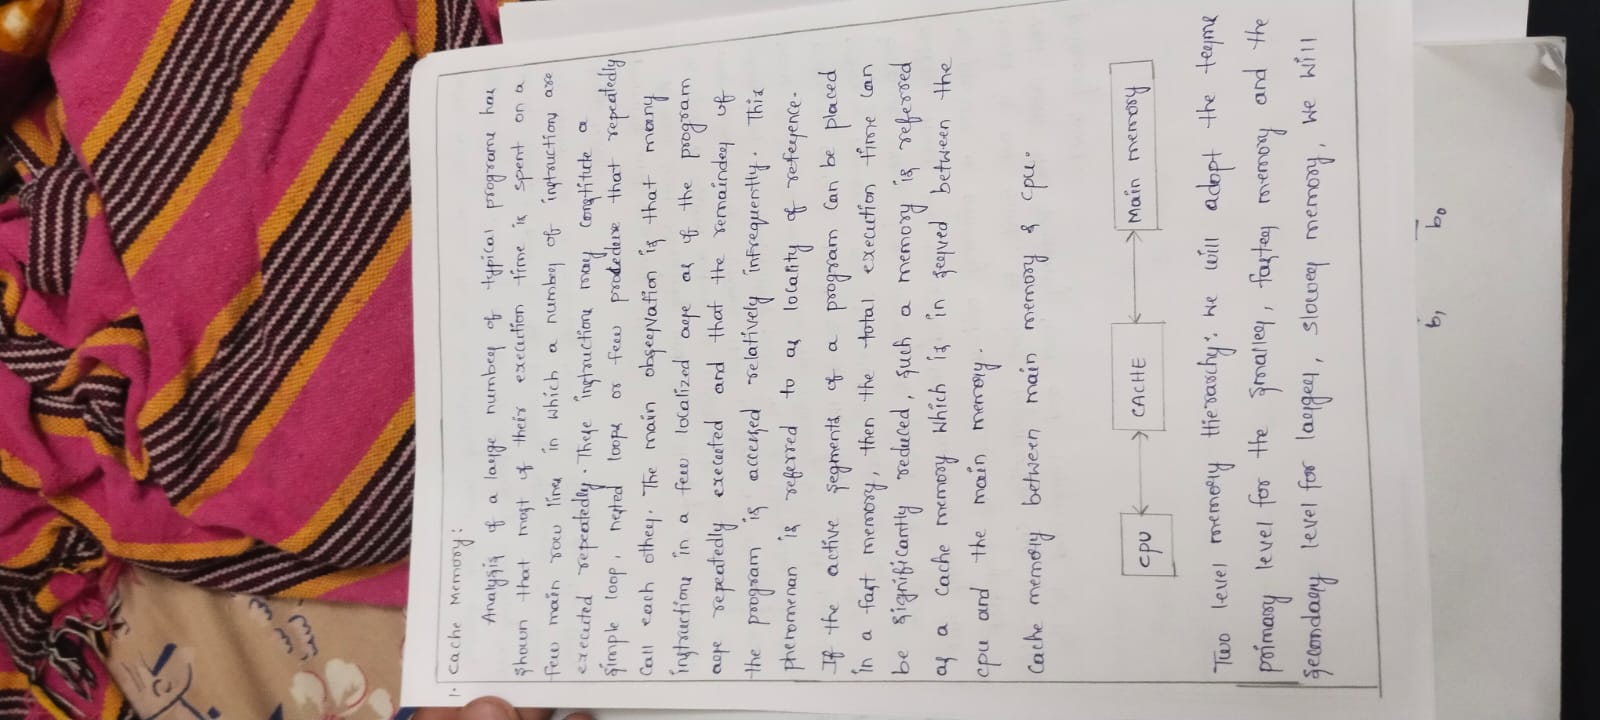 1. Cache Memory:
Analysis of a large number of typical programs has
shown that most of their execution time is spent on a
few main row lines in which a number of instructions are
executed repeatedly. These instructions may constitute a
simple loop, nested loops or few procedure that repeatedly
Call each other. The main observation is that many
instructions in a few localized are as of the program
are repeatedly executed and that the remainder of
the program is accessed relatively infrequently. This
pheromenan is referred to as locality of reference.
If the active segments of a program can be placed
in a fast memory, then the total execution time can
be significantly reduced, such a memory is referred
as a cache memory which is in served between the
cpu and the main memory.
Cache memory between main memory & cpu.
CPU CACHE Main memory
Two level memory Hierarchy: We will adopt the terms
primary level for the smaller, faster memory and the
secondary level for larger, slower memory, we will
b1 b0